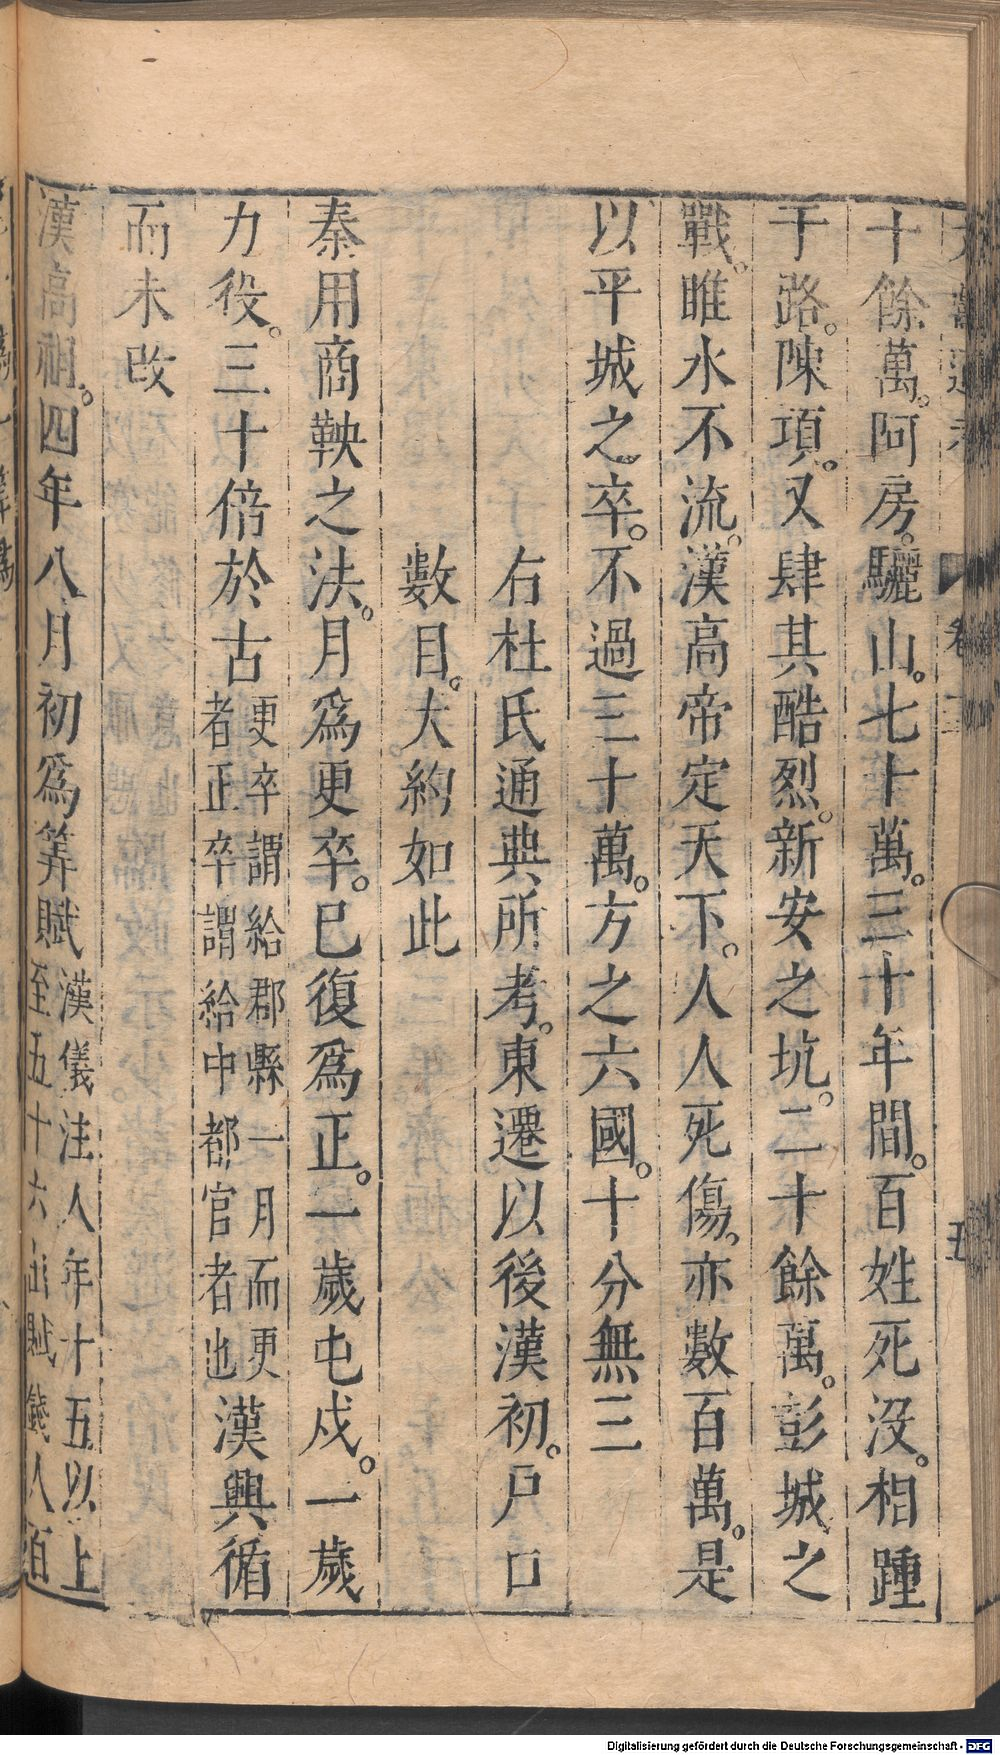 十餘萬。阿房。驪山。七十萬。三十年間。百姓死没。相踵
于路。陳項。又肆其酷烈。新安之坑。二十餘萬。彭城之
戰。睢水不流。漢高帝定天下。人人死傷。亦數百萬。是
以平城之卒。不過三十萬。方之六國。十分無三
右杜氏通典所考。東遷以後漢初。戸口
數目。大約如此
秦用商鞅之法。月爲更卒。巳復爲正。一歲屯戍。一歲
力役。三十倍於古更卒謂給郡縣一月而更者正卒謂給中都官者也漢興循
而未改
漢高祖。四年八月初爲筭賦漢儀注人年十五以上至五十六出賦錢人百
Digitalisierung gefördert durch die Deutsche Forschungsgemeinschaft - DFG